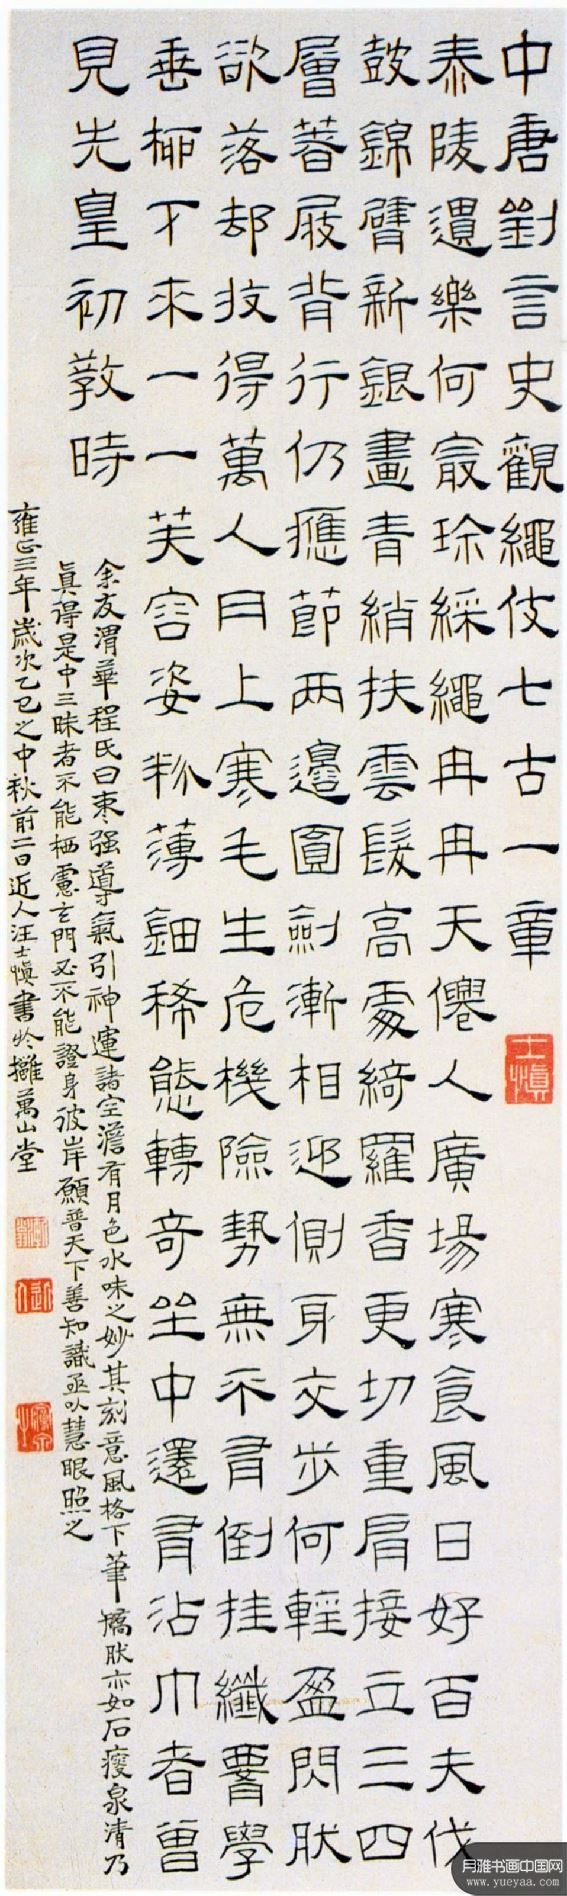 中唐劉言史觀繩伎七古一章
泰陵遺樂何最珍綵繩冉冉天僊人廣場寒食風日好百夫伐
鼓錦臂新銀畫青綃抹雲髮高處綺羅香更切重肩接立三四
層著屐背行仍應節兩邊圓劍漸相迎側身交步何輕盈閃肰
欲落却收得萬人肉上寒毛生危機險勢無不有倒挂纖腰學
垂柳下來一一芙容姿粉薄鈿稀態轉奇坐中還有沾巾者曾
見先皇初教時
余友渭華程氏曰棗强導氣引神運諸空澹有月色水味之妙其刻意風格下筆矯肰亦如石瘦泉清乃
真得是中三昧者不能栖慮玄門必不能證身彼岸願普天下善知識亟以慧眼照之
雍正三年歲次乙巳之中秋前二日近人汪士慎書於攡萬山堂
士慎
近人
月雅书画中国网
www.yueyaa.com